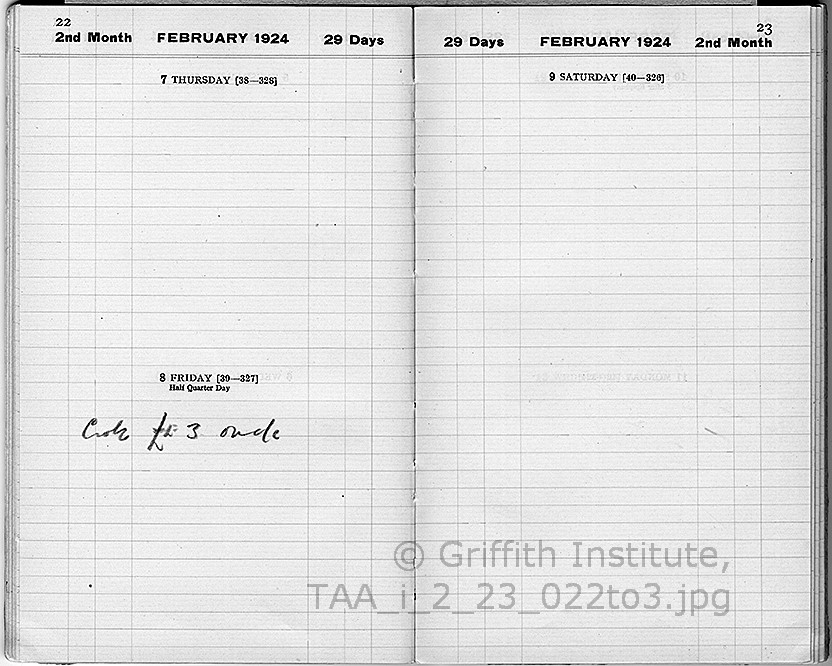 22
2nd Month FEBRUARY 1924 29 Days
7 THURSDAY [38—328]
8 FRIDAY [39—327]
Half Quarter Day
£E 3
23
29 Days FEBRUARY 1924 2nd Month
9 SATURDAY [40—326]
© Griffith Institute,
TAA_i_2_23_022to3.jpg